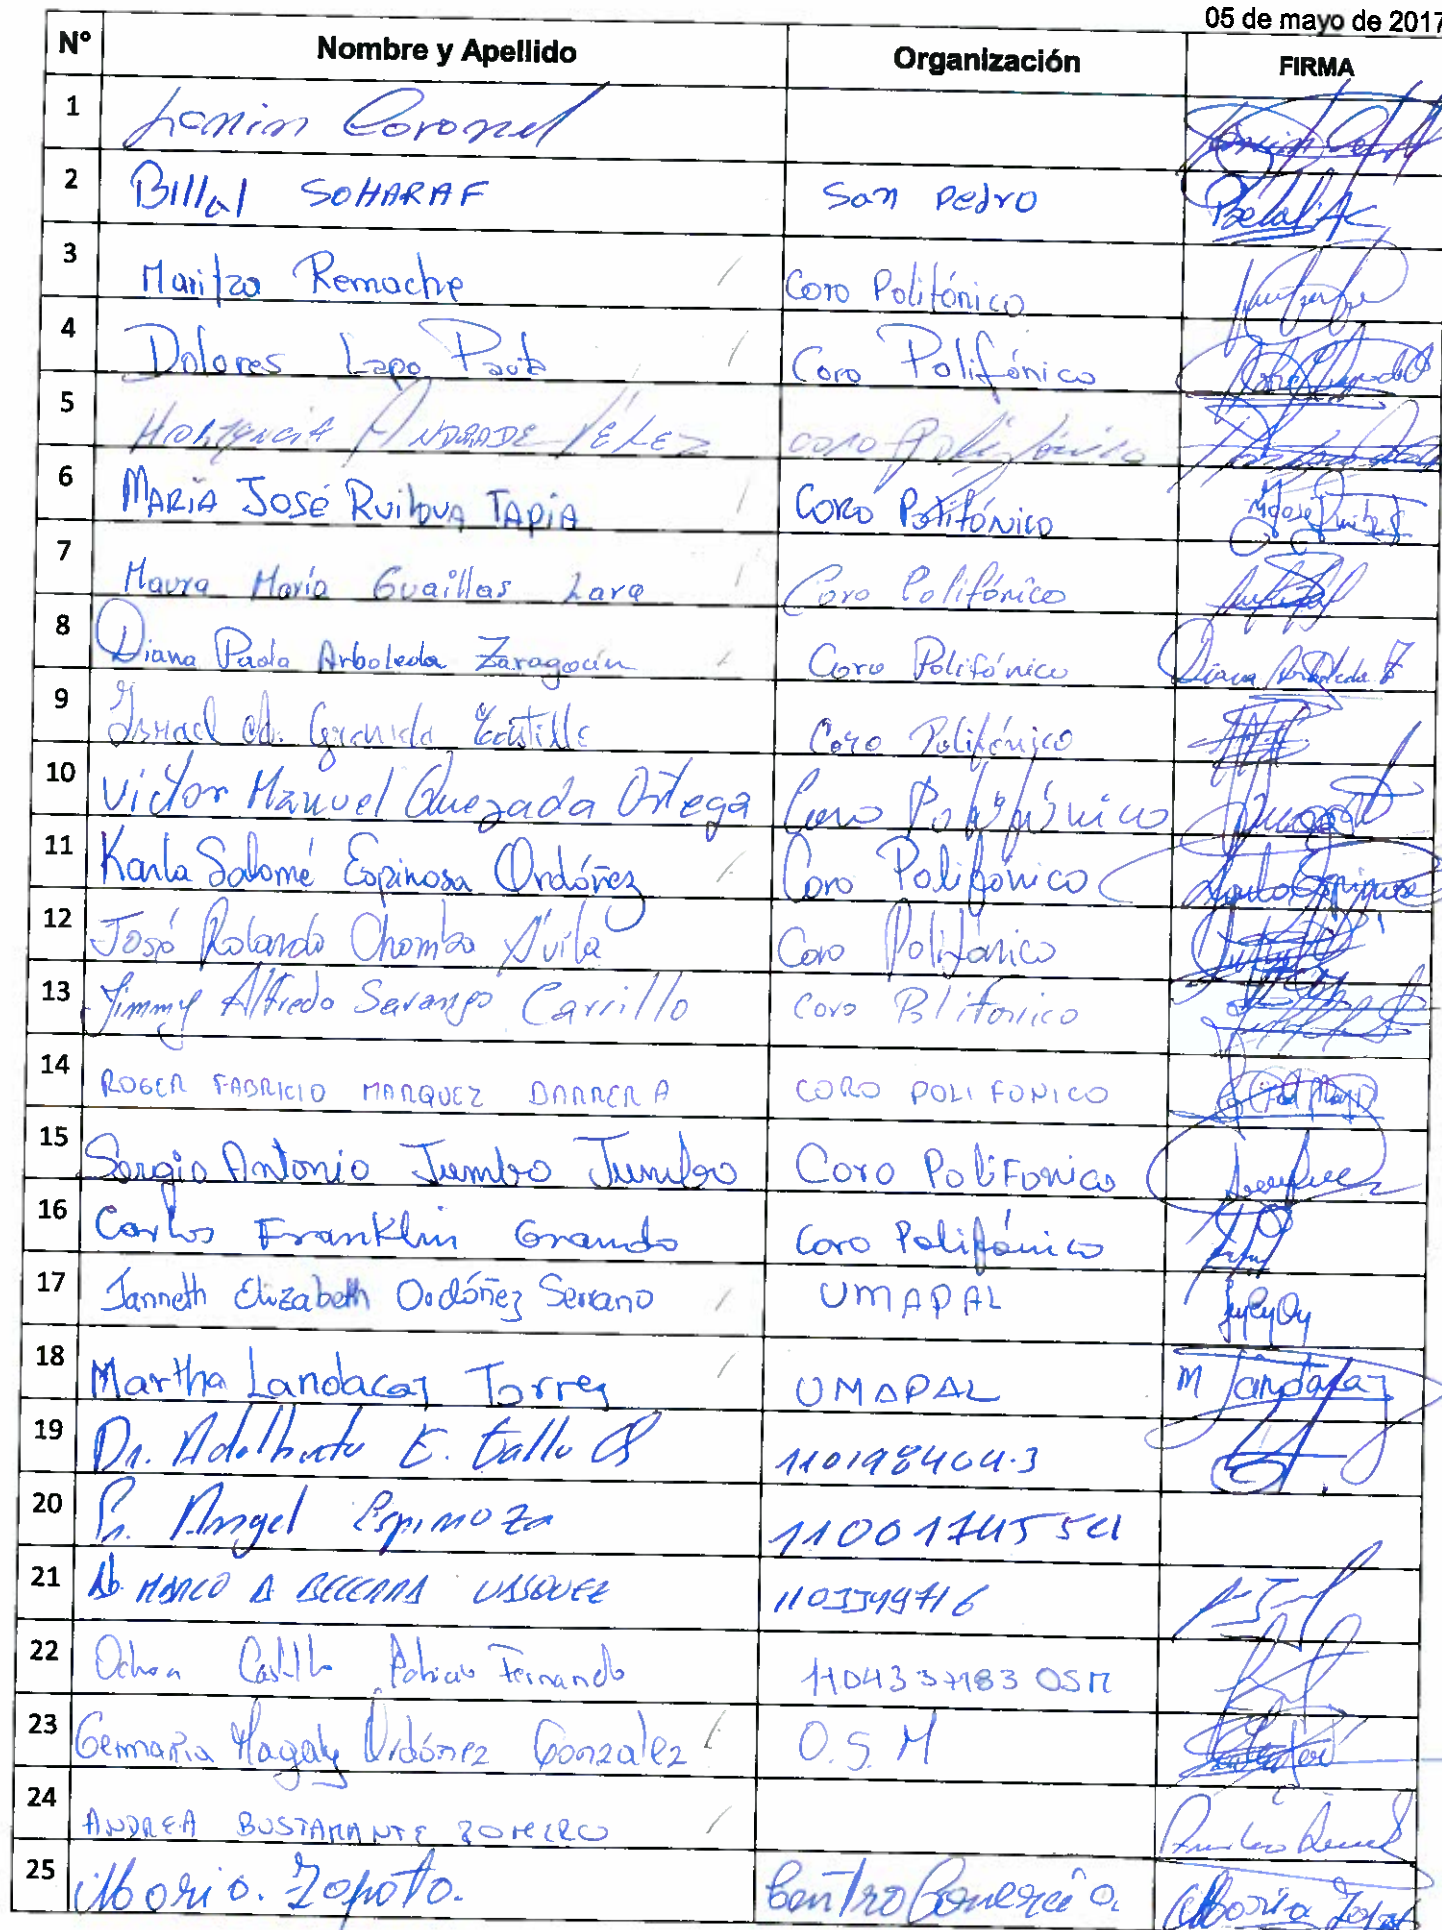 05 de mayo de 2017
N° Nombre y Apellido Organización FIRMA
1 Coronel
2 Billal SOHARAF San Pedro
3 Maritza Remache Coro Polifónico
4 Dolores Lapo Pauta Coro Polifónico
5 Hortencia ANDRADE VÉLEZ coro Polifónico
6 MARIA JOSÉ Ruilova TAPIA CORO Polifónico
7 Maura María Guaillas Lara Coro Polifónico
8 Diana Paola Arboleda Zaragocin Coro Polifónico Diana Arboleda Z
9 Ismael Granda Castillo Coro Polifónico
10 Victor Manuel Quezada Ortega Coro Polifónico
11 Karla Salomé Espinosa Ordóñez Coro Polifónico
12 José Rolando Chamba Ávila Coro Polifónico
13 Jimmy Alfredo Sarango Carrillo Coro Polifonico
14 ROGER FABRICIO MARQUEZ BARRERA CORO POLIFONICO
15 Sergio Antonio Jumbo Jumbo Coro PoliFonico
16 Carlos Franklin Granda Coro Polifónico
17 Janneth Elizabeth Ordóñez Serrano UMAPAL
18 Martha Landacay Torres UMAPAL M Landacay
19 Dr. Adalberto E. 110198404-3
20 Angel Espinoza
21 Ab. MARCO A BECERRA VASQUEZ
22 Ochoa Castillo Patricio Fernando 1104337183 OSM
23 Germania Magaly Ordóñez Gonzalez O.S.M
24 ANDREA BUSTAMANTE ROMERO
25 Maria. Zapata. Centro Comercio.